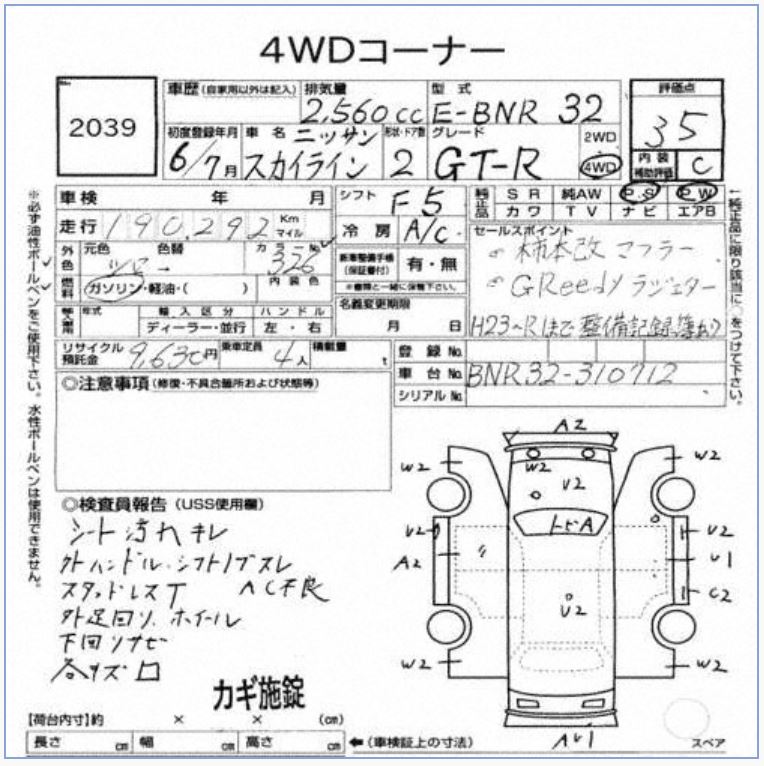 4WDコーナー
No.
2039
車歴 (自家用以外は記入) 排気量 型式 評価点
2,560cc E-BNR 32 35
初度登録年月 車名 ニッサン 形状・ドア数 グレード 2WD 4WD
6/7月 スカイライン 2 GT-R
内装補助評価 C
※必ず油性ボールペンをご使用下さい。水性ボールペンは使用できません。
車検 年 月 シフト F5
走行 190,292 Km マイル 冷房 A/C
純正品 SR 純AW P.S P.W
カワ TV ナビ エアB
↑純正品に限り該当に○をつけて下さい。
外色 元色 色替 カラーNo.
→ 326
新車整備手帳 (保証書付) 有・無
※書類と一緒に保管下さい。
セールスポイント
柿本改 マフラー
GReedy ラジエター
H23~Rはまで整備記録簿あり
燃料 ガソリン・軽油・( ) 内装色
年式 輸入区分 ハンドル
ディーラー・並行 左・右
名義変更期限
月 日
リサイクル預託金 9,630円 乗車定員 4人 積載量 t
登録No.
車台No. BNR32-310712
シリアルNo.
◎注意事項 (修復・不具合箇所および状態等)
◎検査員報告 (USS使用欄)
シート汚れキレ
外ハンドル.シフトノブスレ
スタッドレスT AC不良
外足回り.ホイール
下回リサビ
各キズ口
カギ施錠
A2
W2 W2 W2
U2
トビA
U2 U2
A2 U1
C2
U2
W2 W2
AU1
【荷台内寸】約 × × (cm)
長さ cm 幅 cm 高さ cm ←(車検証上の寸法)
スペア